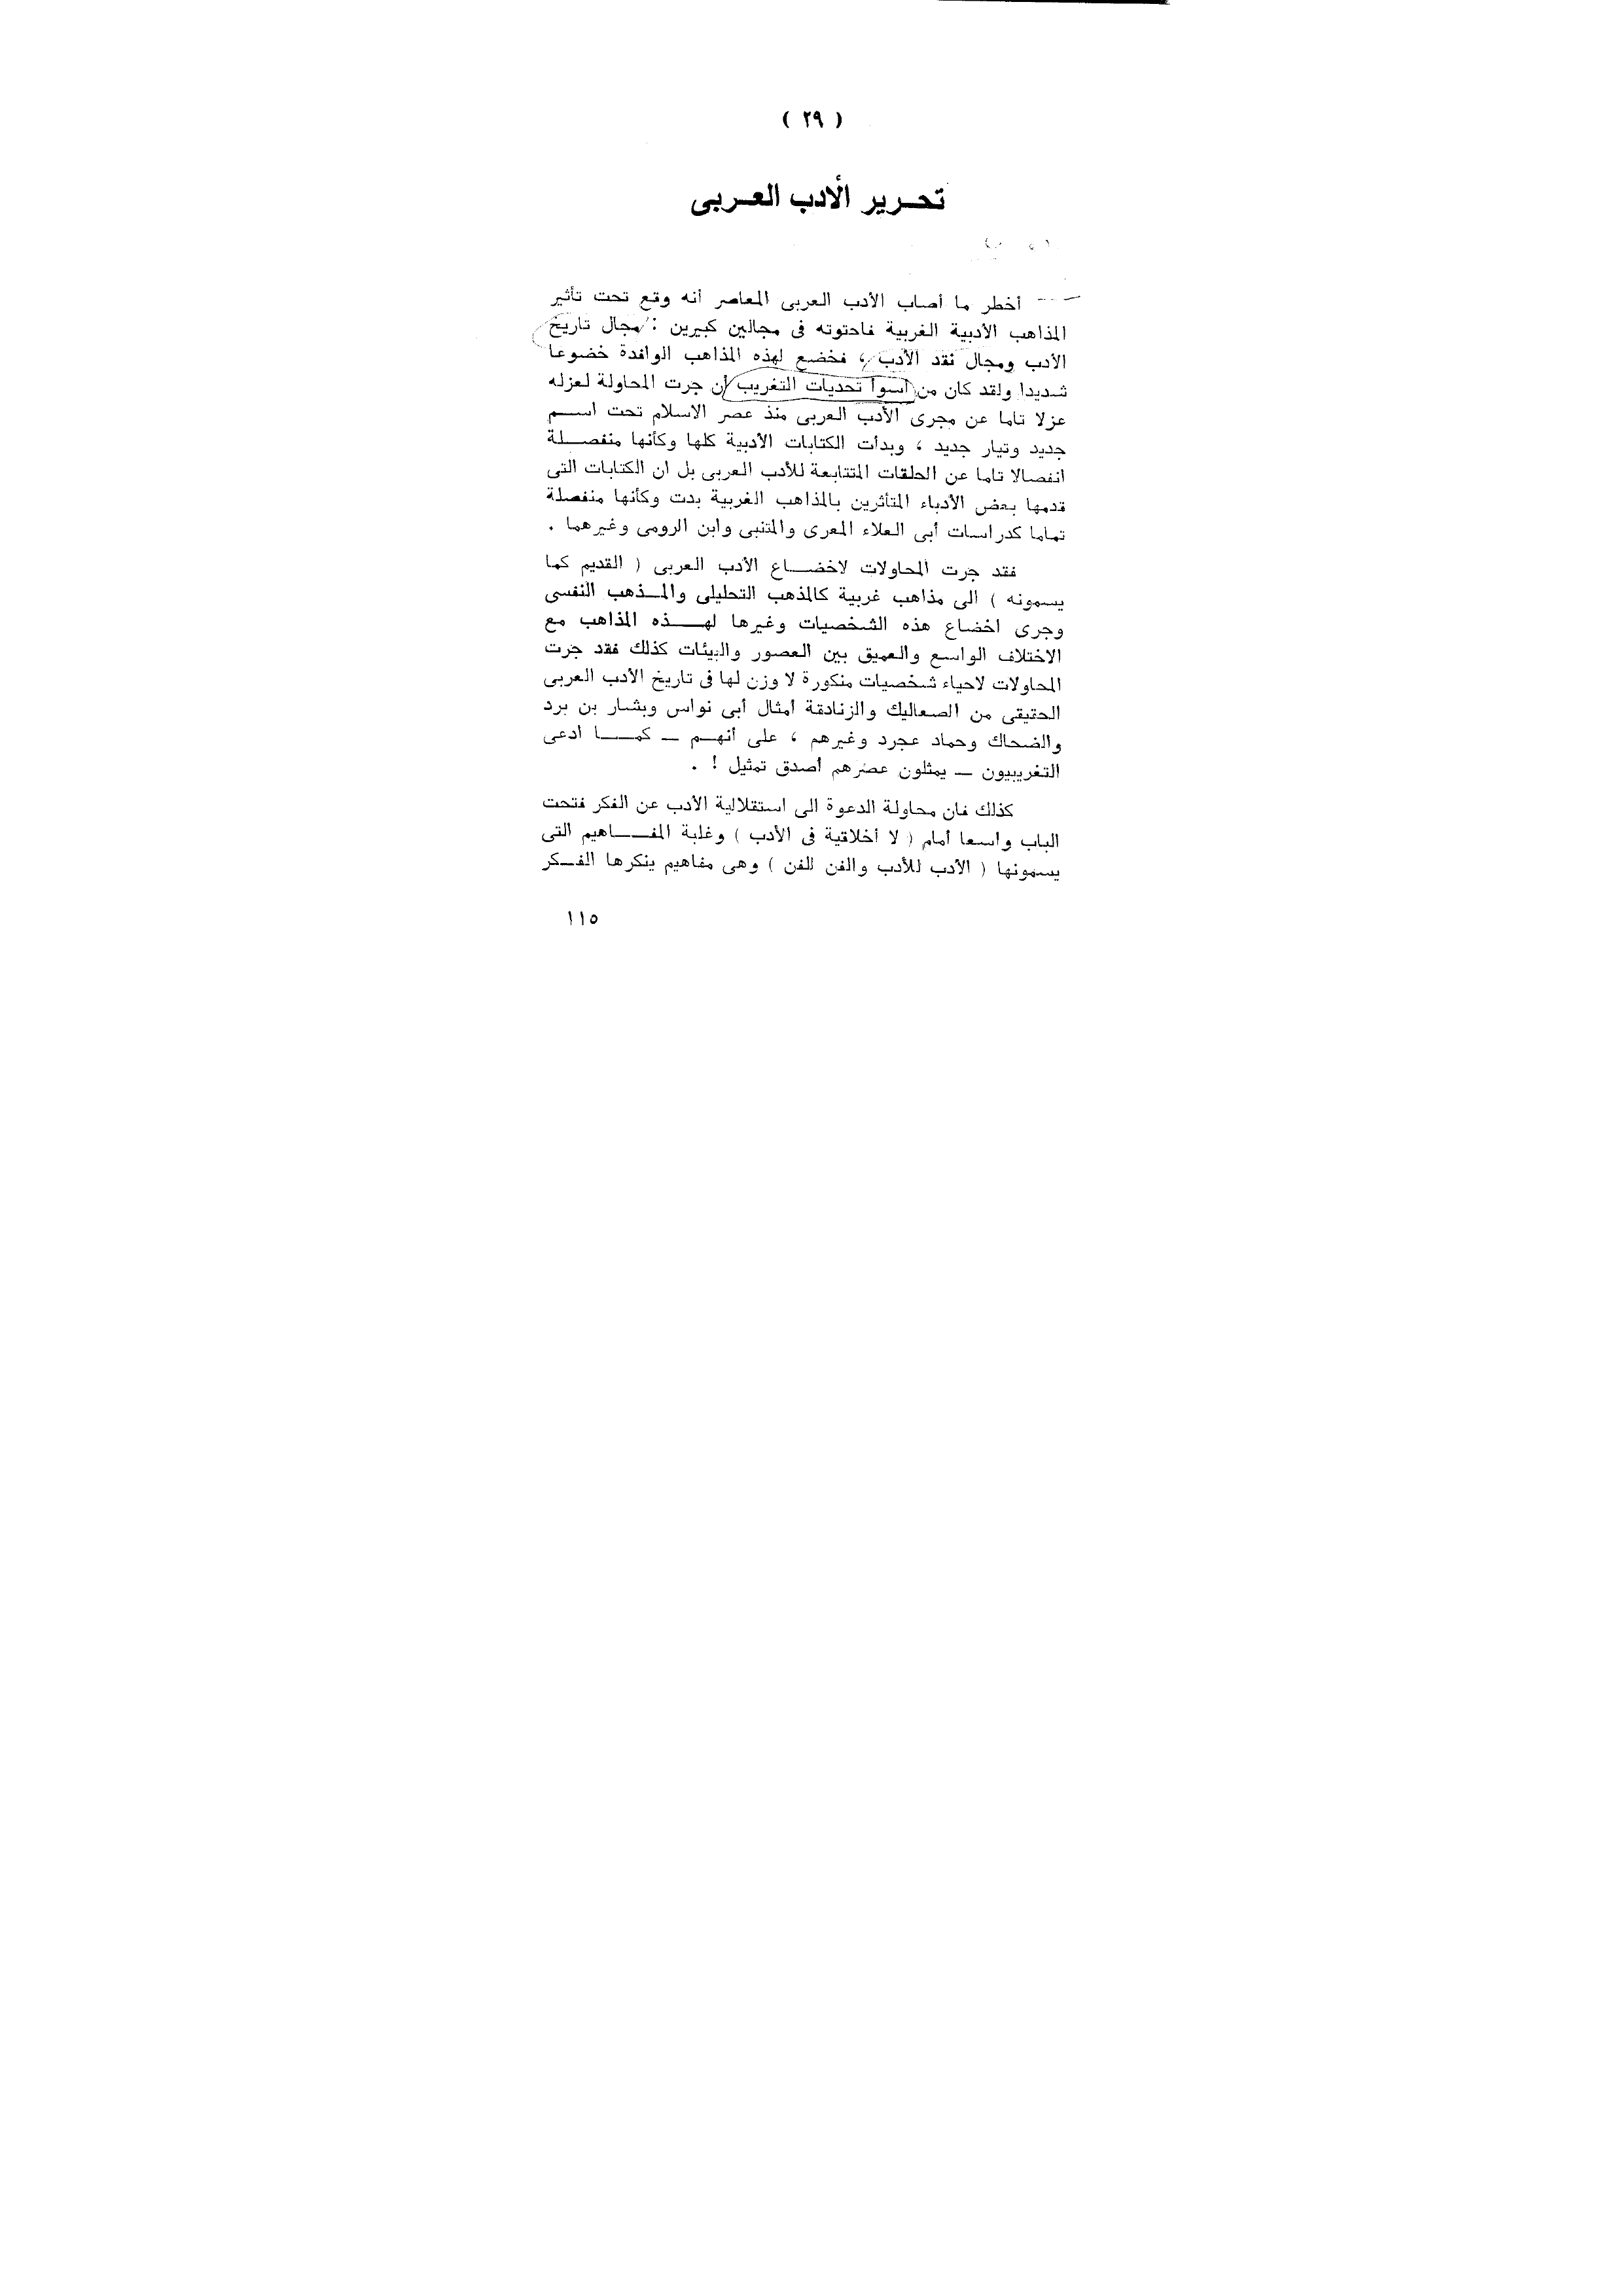 ( ٢٩ )
تحـرير الأدب العـربى
أخطر ما أصاب الأدب العربى المعاصر أنه وقع تحت تأثير
المذاهب الأدبية الغربية فاحتوته فى مجالين كبيرين : مجال تاريخ
الأدب ومجال نقد الأدب ، فخضع لهذه المذاهب الوافدة خضوعا
شديدا ولقد كان من أسوأ تحديات التغريب أن جرت المحاولة لعزله
عزلا تاما عن مجرى الأدب العربى منذ عصر الاسلام تحت اسـم
جديد وتيار جديد ، وبدأت الكتابات الأدبية كلها وكأنها منفصـلة
انفصالا تاما عن الحلقات المتتابعة للأدب العربى بل ان الكتابات التى
قدمها بعض الأدباء المتأثرين بالمذاهب الغربية بدت وكأنها منفصلة
تماما كدراسات أبى العلاء المعرى والمتنبى وابن الرومى وغيرهما .
فقد جرت المحاولات لاخضـاع الأدب العربى ( القديم كما
يسمونه ) الى مذاهب غربية كالمذهب التحليلى والمـذهب النفسى
وجرى اخضاع هذه الشخصيات وغيرها لهـذه المذاهب مع
الاختلاف الواسع والعميق بين العصور والبيئات كذلك فقد جرت
المحاولات لاحياء شخصيات منكورة لا وزن لها فى تاريخ الأدب العربى
الحقيقى من الصعاليك والزنادقة أمثال أبى نواس وبشار بن برد
والضحاك وحماد عجرد وغيرهم ، على أنهـم ـ كمـا ادعى
التغريبيون ـ يمثلون عصرهم أصدق تمثيل ! .
كذلك فان محاولة الدعوة الى استقلالية الأدب عن الفكر فتحت
الباب واسعا أمام ( لا أخلاقية فى الأدب ) وغلبة المفـاهيم التى
يسمونها ( الأدب للأدب والفن للفن ) وهى مفاهيم ينكرها الفـكر
١١٥